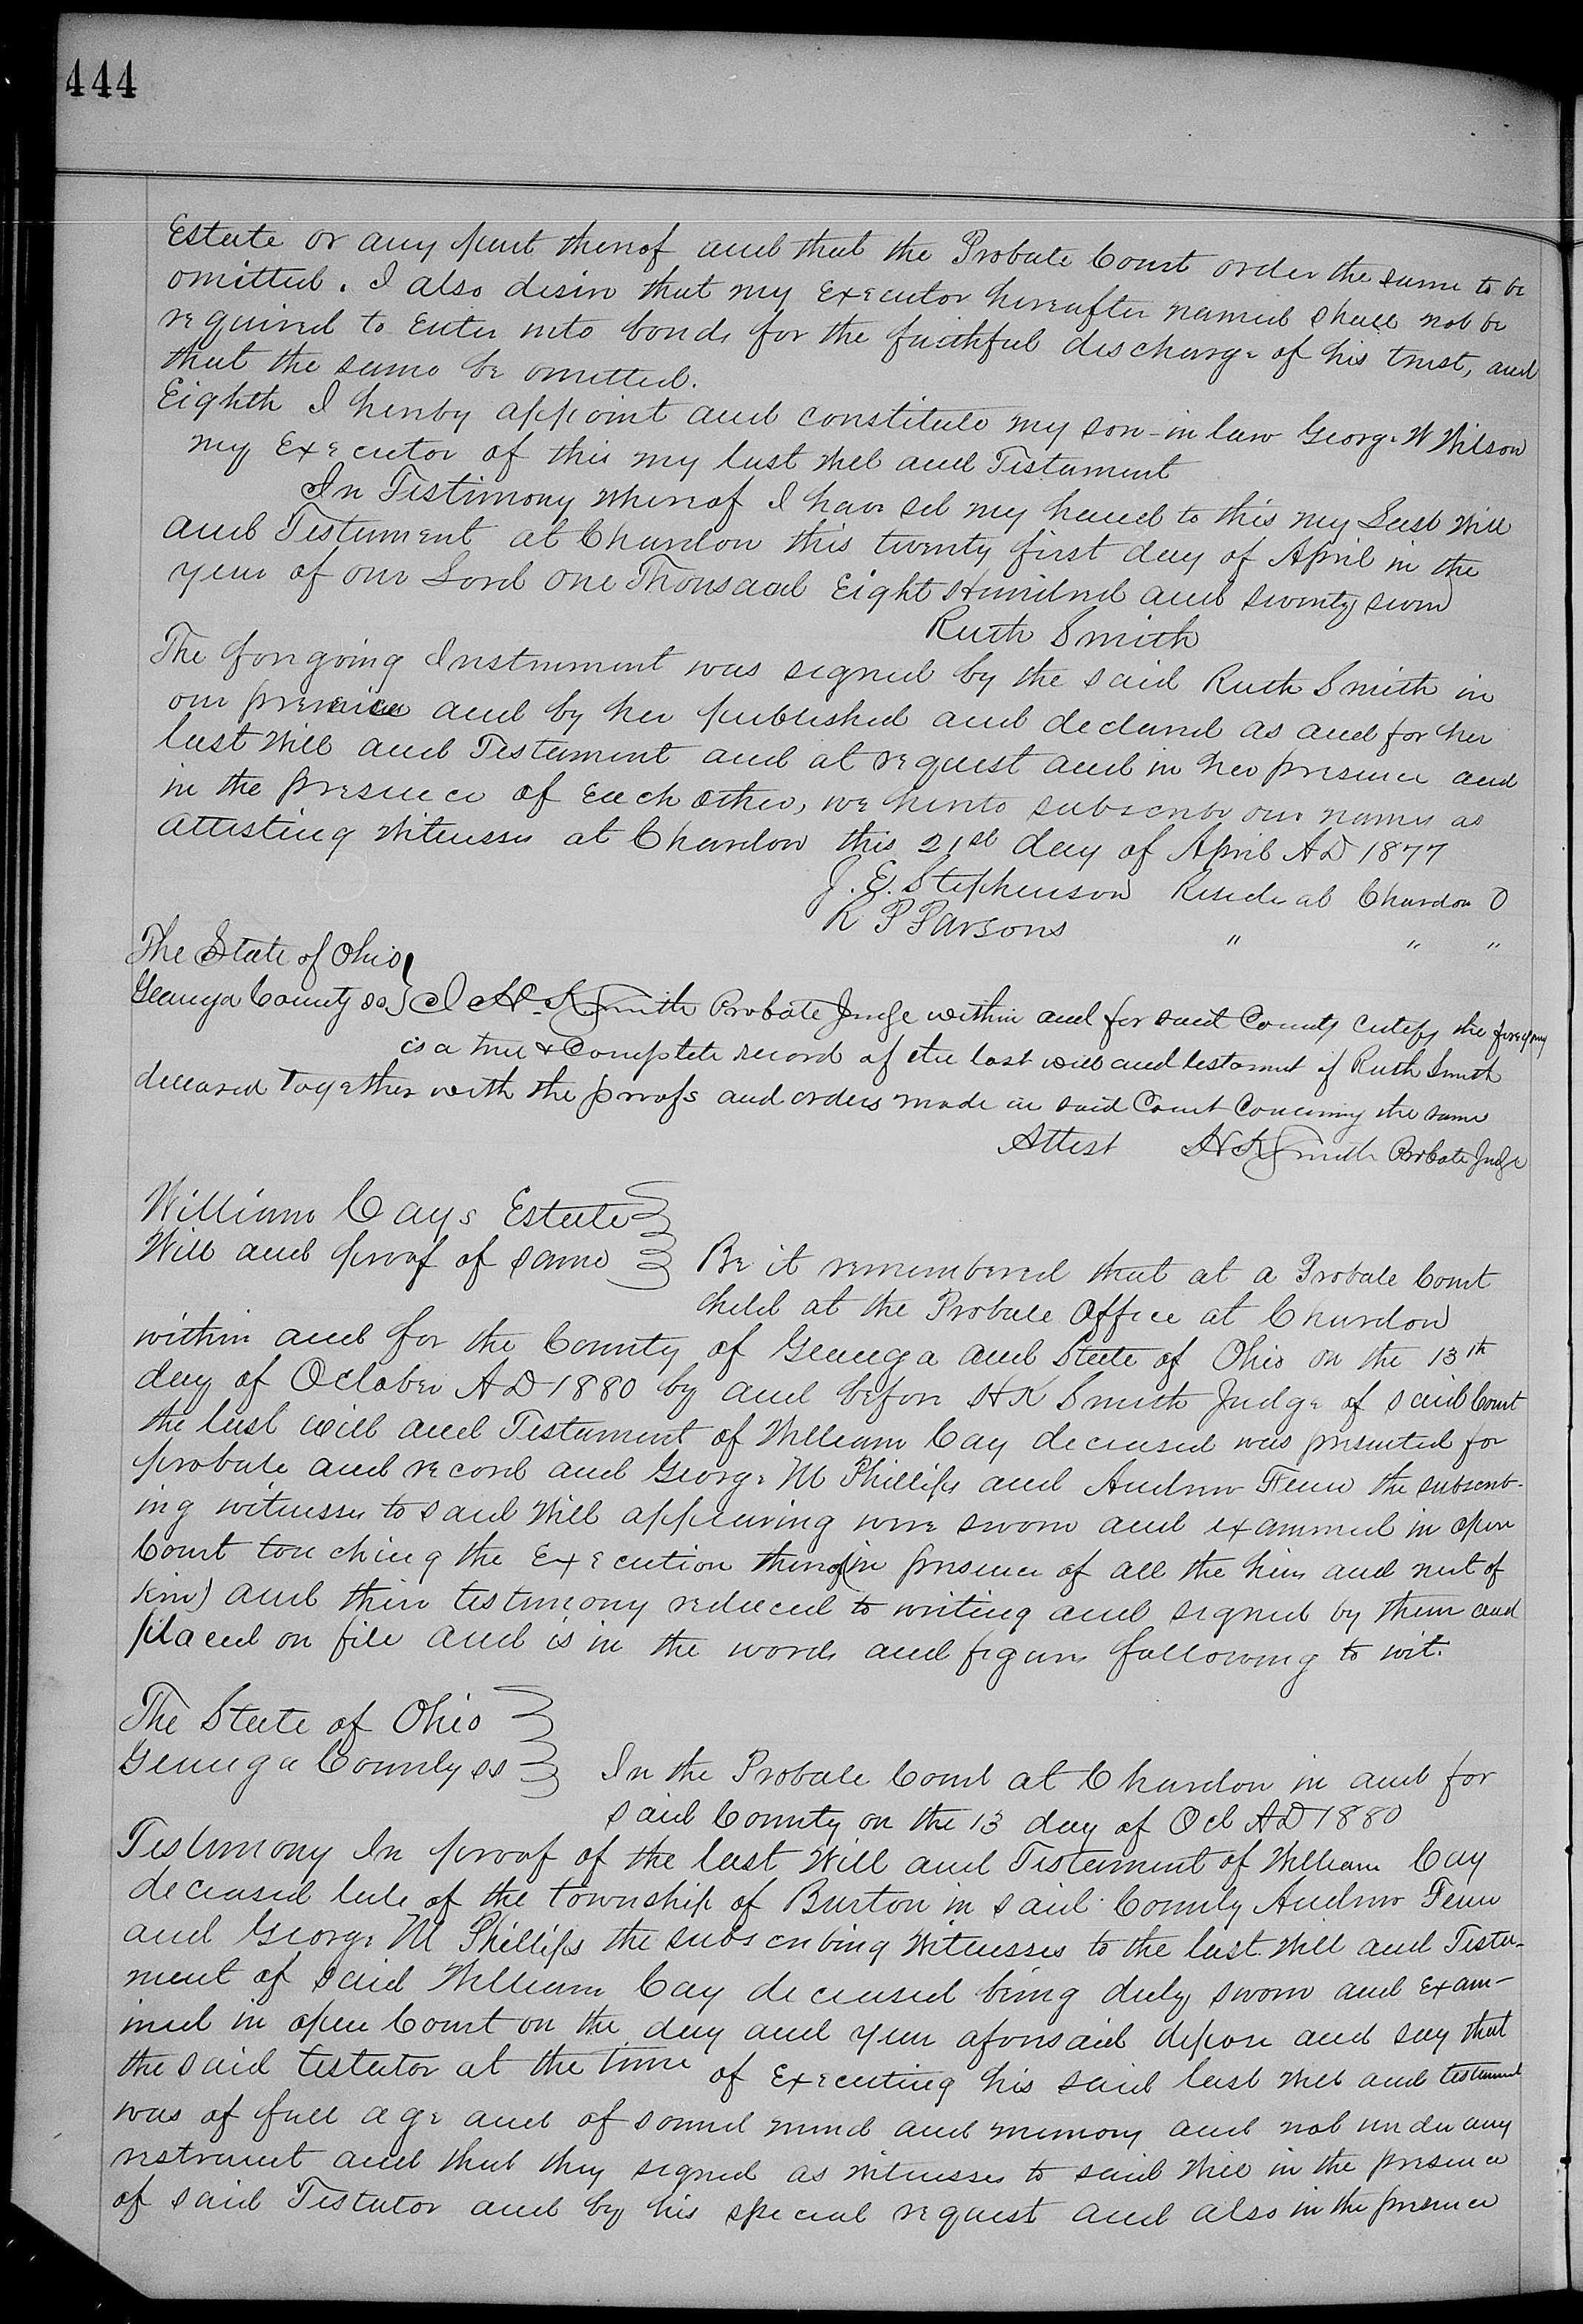 444
Estate or any part thereof and that the Probate Court order the same to be
omitted. I also desire that my Executor hereafter named shall not be
required to Enter into bonds for the faithful discharge of his trust, and
that the same be omitted.
Eighth I hereby appoint and constitute my son-in law George W Wilson
my Executor of this my last will and Testament
In Testimony whereof I have set my hand to this my Last Will
and Testament at Chardon this twenty first day of April in the
year of our Lord One Thousand Eight Hundred and seventy seven
Ruth Smith
The foregoing Instrument was signed by the said Ruth Smith in
our presence and by her published and declared as and for her
last will and Testament and at request and in her presence and
in the presence of Each other, we hereto subscribe our names as
attesting Witnesses at Chardon this 21st day of April AD 1877
J. E. Stephenson Reside at Chardon O
R P Parsons " " "
The State of Ohio
Geauga County ss } I H. K. Smith Probate Judge within and for said County certify the foregoing
is a true & Complete record of the last will and testament of Ruth Smith
deceased Together with the proofs and orders made in said Court Concerning the same
Attest H K Smith Probate Judge
William Cays Estate
Will and proof of same } Be it remembered that at a Probate Court
held at the Probate Office at Chardon
within and for the County of Geauga and State of Ohio on the 13th
day of October AD 1880 by and before H K Smith Judge of said Court
the last will and Testament of William Cay deceased was presented for
probate and record and George M Phillips and Andrew Fenn the subscrib-
ing witnesses to said Will appearing were sworn and examined in open
Court touching the Execution thereof (in presence of all the heirs and next of
kin) and their testimony reduced to writing and signed by them and
placed on file and is in the words and figures following to wit.
The State of Ohio
Geauga County ss } In the Probate Court at Chardon in and for
said County on the 13 day of Oct AD 1880
Testimony In proof of the last Will and Testament of William Cay
deceased late of the township of Burton in said County Andrew Fenn
and George M Phillips the subscribing Witnesses to the last Will and Testa-
ment of said William Cay deceased being duly sworn and Exam-
ined in open Court on the day and year aforesaid depose and say that
the said testator at the time of Executing his said last Will and testament
was of full age and of sound mind and memory and not under any
restraint and that they signed as witnesses to said Will in the presence
of said Testator and by his special request and also in the presence